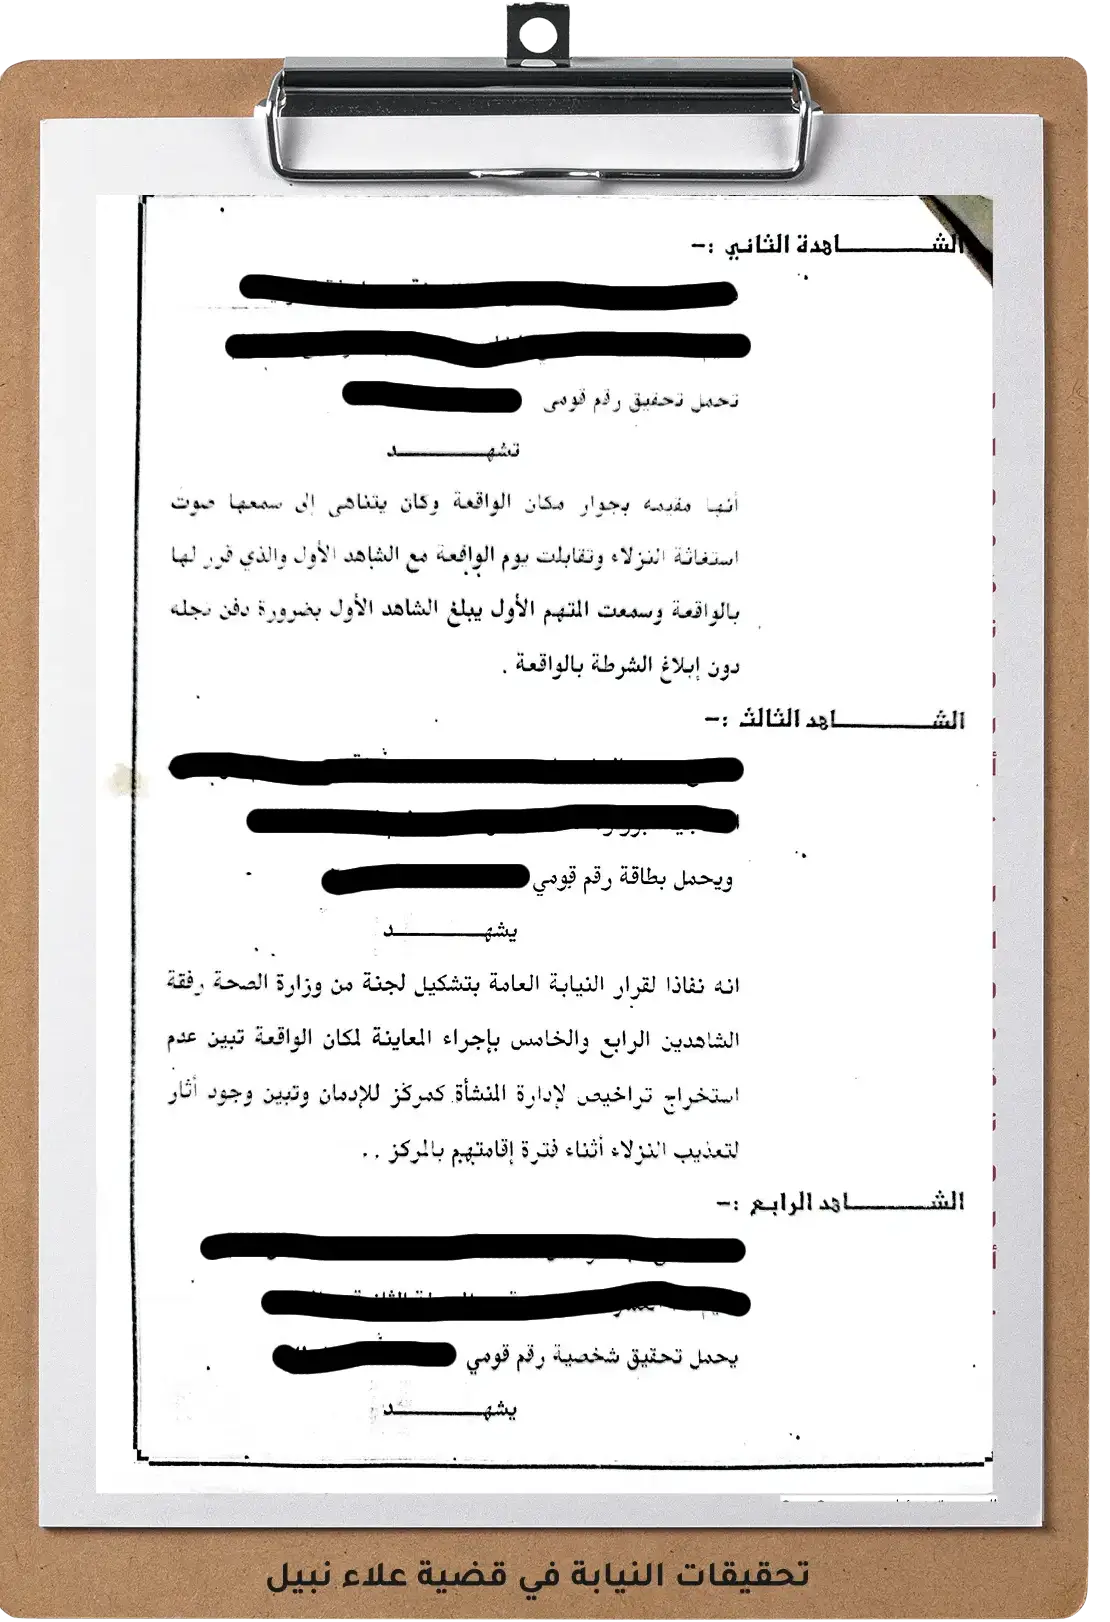 الشاهدة الثاني :-
تحمل تحقيق رقم قومى
تشهد
أنها مقيمه بجوار مكان الواقعة وكان يتناهى إلى سمعها صوت
استغاثة النزلاء وتقابلت يوم الواقعة مع الشاهد الأول والذي قرر لها
بالواقعة وسمعت المتهم الأول يبلغ الشاهد الأول بضرورة دفن نجله
دون إبلاغ الشرطة بالواقعة .
الشاهد الثالث :-
ويحمل بطاقة رقم قومي
يشهد
انه نفاذا لقرار النيابة العامة بتشكيل لجنة من وزارة الصحة رفقة
الشاهدين الرابع والخامس بإجراء المعاينة لمكان الواقعة تبين عدم
استخراج تراخيص لإدارة المنشأة كمركز للإدمان وتبين وجود أثار
لتعذيب النزلاء أثناء فترة إقامتهم بالمركز . .
الشاهد الرابع :-
يحمل تحقيق شخصية رقم قومي
يشهد
تحقيقات النيابة في قضية علاء نبيل